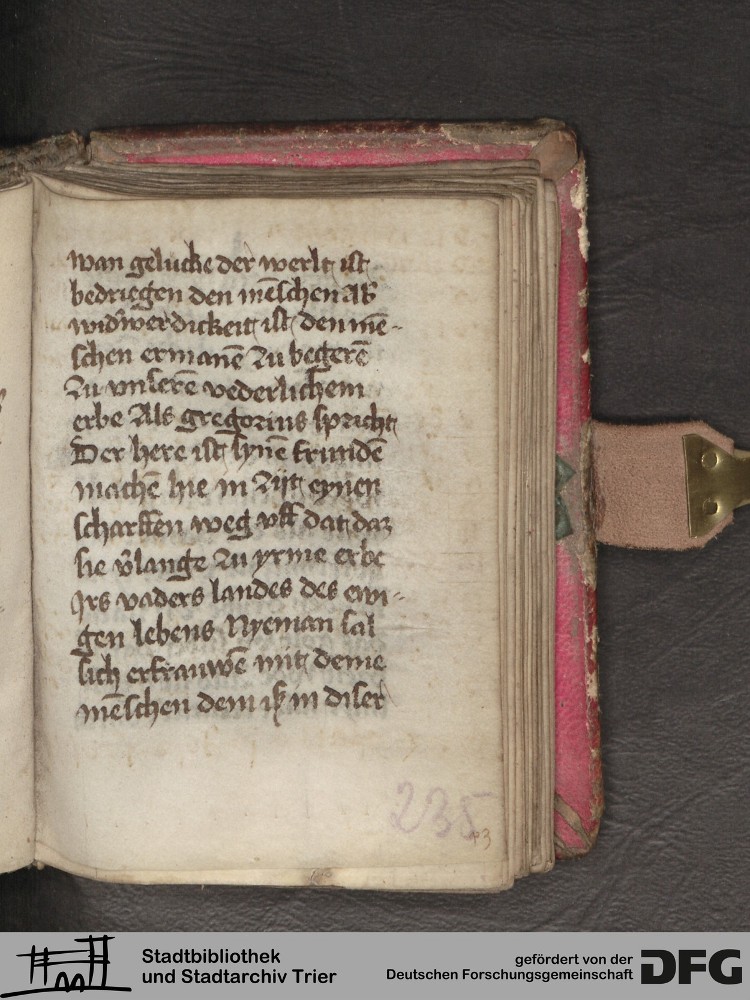 wan gelucke der werlt ist
bedriegen den mēschen Ab̄
wid'werdickeit ist den mē-
schen ermanē zu begerē
zu vnserē vederlichem
erbe Als gregorius spricht
Der here ist synē frundē
machē hie in zijt eynen
scharffen weg vff dat daz
sie v'lange zu yrme erbe
Irs vaders landes des ewi-
gen lebens Nyeman sal
sich erfrauwē mit deme
mēschen dem iß in diser
235
93
Stadtbibliothek
und Stadtarchiv Trier
gefördert von der
Deutschen Forschungsgemeinschaft
DFG